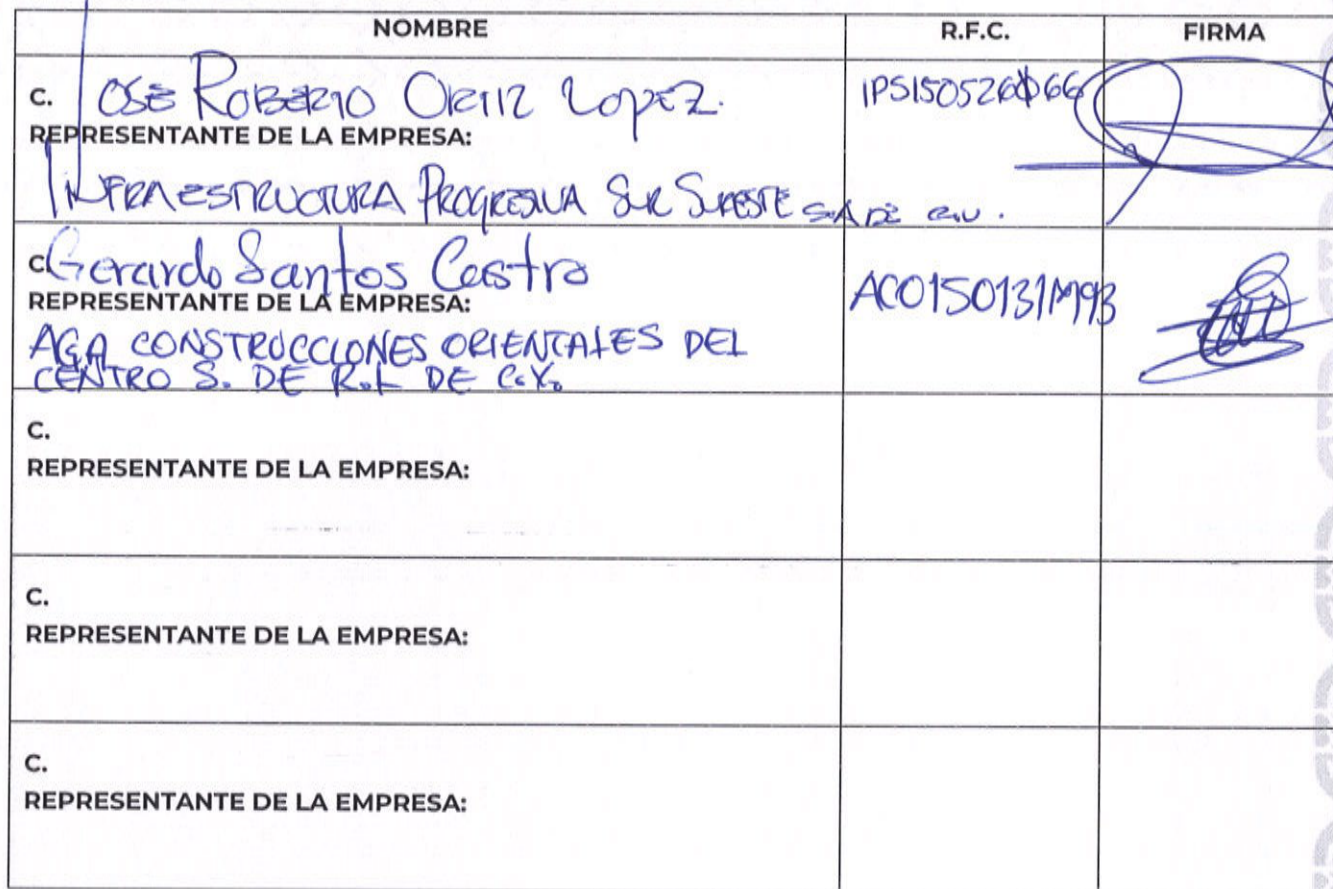 NOMBRE R.F.C. FIRMA
C. JOSE ROBERTO ORTIZ LOPEZ. IPS150526066
REPRESENTANTE DE LA EMPRESA:
INFRAESTRUCTURA PROGRESIVA SUR SURESTE S.A DE C.V.
C. Gerardo Santos Castro ACO150131M93
REPRESENTANTE DE LA EMPRESA:
AGA CONSTRUCCIONES ORIENTALES DEL
CENTRO S. DE R.L DE C.V.
C.
REPRESENTANTE DE LA EMPRESA:
C.
REPRESENTANTE DE LA EMPRESA:
C.
REPRESENTANTE DE LA EMPRESA: